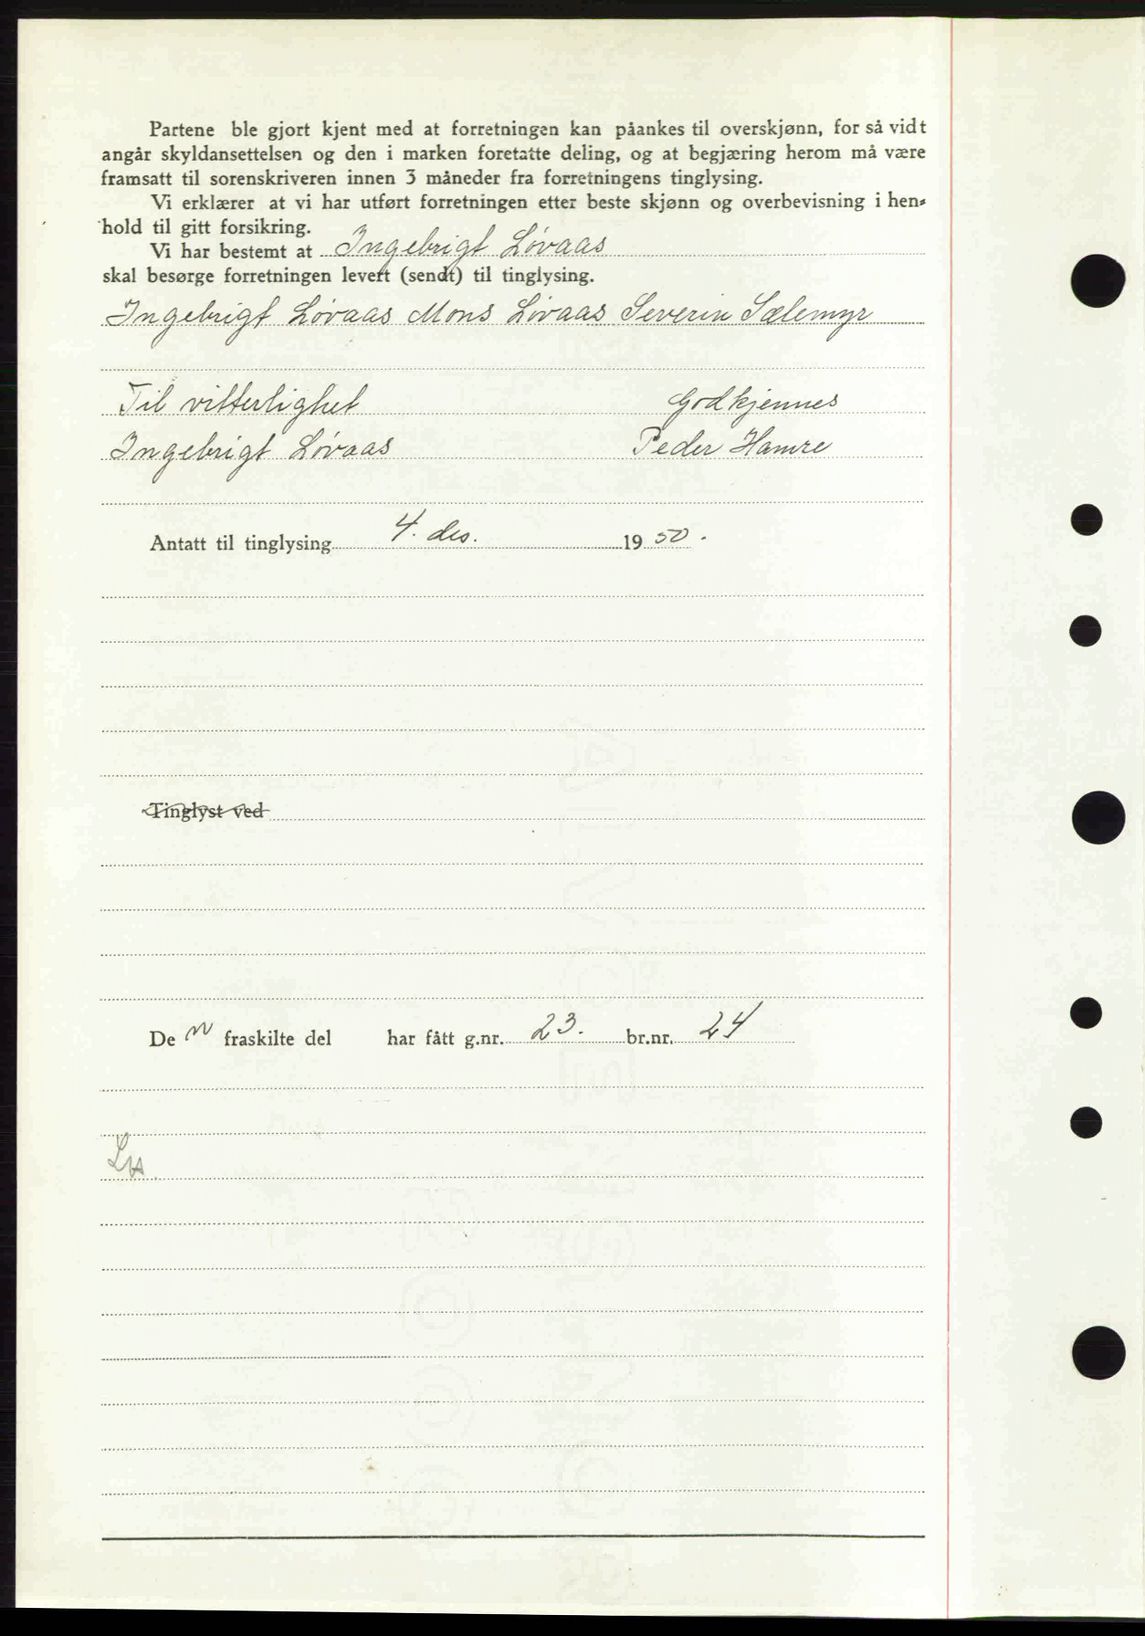 Partene ble gjort kjent med at forretningen kan påankes til overskjønn, for så vidt
angår skyldansettelsen og den i marken foretatte deling, og at begjæring herom må være
framsatt til sorenskriveren innen 3 måneder fra forretningens tinglysing.
Vi erklærer at vi har utført forretningen etter beste skjønn og overbevisning i hen-
hold til gitt forsikring.
Vi har bestemt at Ingebrigt Lövaas
skal besørge forretningen levert (sendt) til tinglysing.
Ingebrigt Lövaas Mons Lövaas Severin Sælemyr
Til vitterlighet Godkjennes
Ingebrigt Lövaas Peder Hamre
Antatt til tinglysing 4. des. 1950.
Tinglyst ved
De n fraskilte del har fått g.nr. 23. br.nr. 24